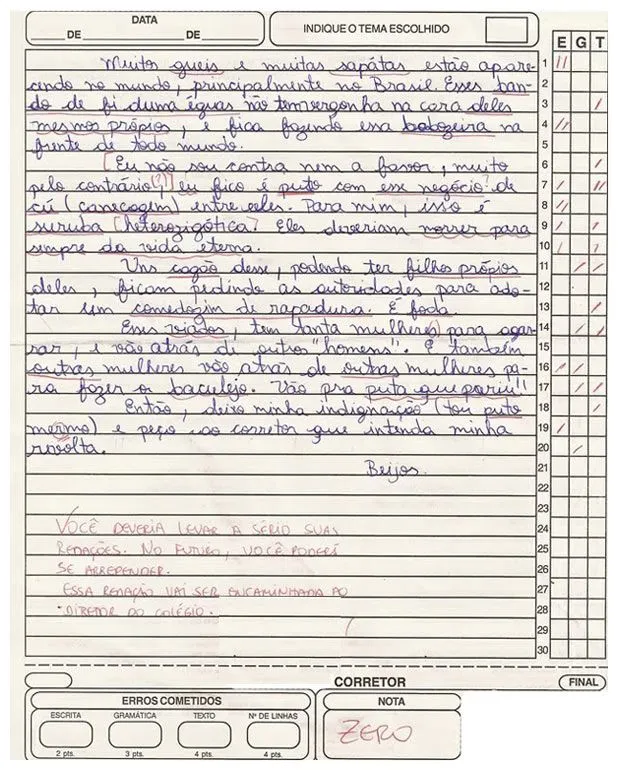 DATA
DE DE
INDIQUE O TEMA ESCOLHIDO
E G T
Muitos gueis e muitas sapátas estão apare- 1
cendo no mundo, principalmente no Brasil. Esses ban- 2
do de fi duma éguas não tem vergonha na cara deles 3
mesmos própios, e fica fazendo essa babozeira na 4
frente de todo mundo. 5
[Eu não sou contra nem a favor, muito 6
pelo contrário(?)] eu fico é puto com esse negócio de 7
cú (canecagem) entre eles. Para mim, isso é 8
suruba [heterozigótica? Eles deveriam morrer para 9
sempre da vida eterna. 10
Uns cagão desse, podendo ter filhos própios 11
deles, ficam pedindo as autoridades para ado- 12
tar um comedozim de rapadura. É foda. 13
Esses viados, tem tanta mulher(e) para agar- 14
rar, e vão atrás di outros "homens". E também 15
outras mulheres vão atrás de outras mulheres pa- 16
ra fazer o baculejo. Vão pra puta que pariu!! 17
Então, deixo minha indignação (tou puto 18
mermo) e peço ao corretor que intenda minha 19
revolta. 20
Beijos. 21
22
23
VOCÊ DEVERIA LEVAR A SÉRIO SUAS 24
REDAÇÕES. NO FUTURO, VOCÊ PODERÁ 25
SE ARREPENDER. 26
ESSA REDAÇÃO VAI SER ENCAMINHADA AO 27
DIRETOR DO COLÉGIO. 28
29
30
CORRETOR FINAL
ERROS COMETIDOS NOTA
ESCRITA GRAMÁTICA TEXTO Nº DE LINHAS
ZERO
2 pts. 3 pts. 4 pts. 4 pts.